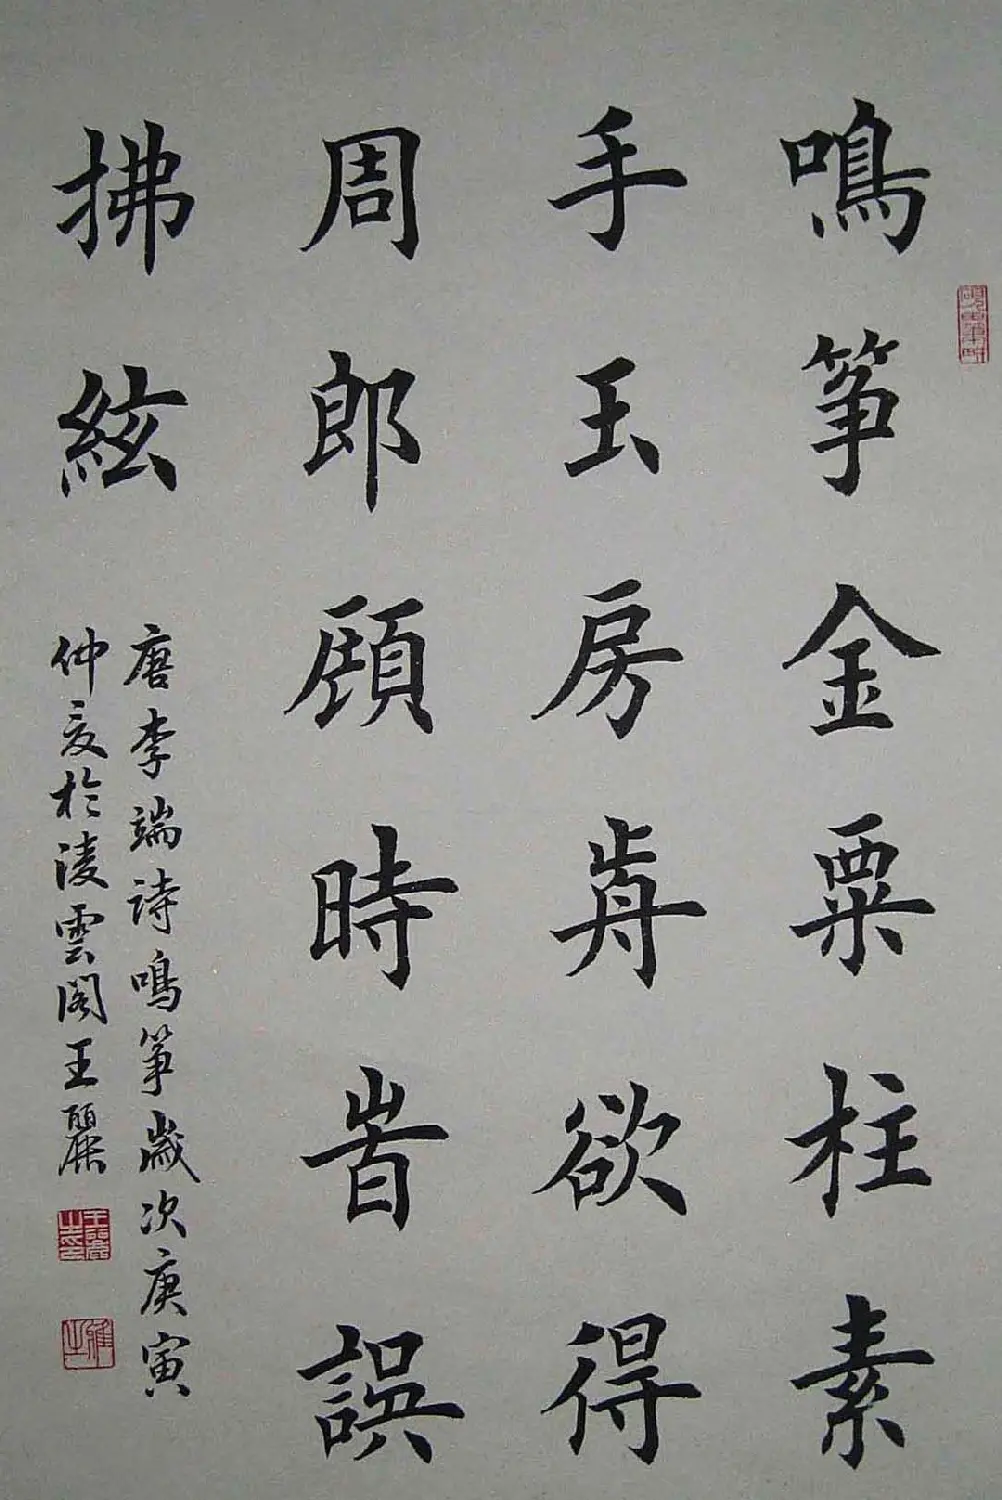 鳴箏金粟柱素
手玉房歬欲得
周郎顧時時誤
拂絃
唐李端詩鳴箏歲次庚寅
仲夏於淩雲閣王麗